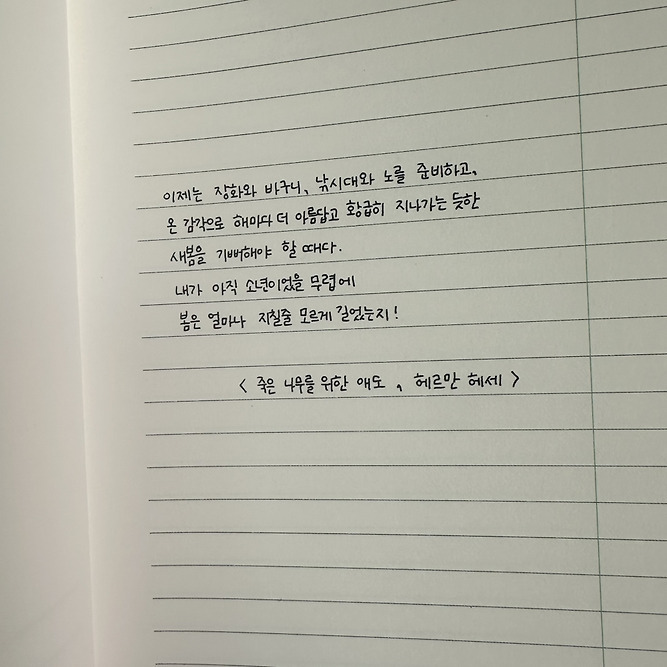 이제는 장화와 바구니, 낚시대와 노를 준비하고,
온 감각으로 해마다 더 아름답고 황급히 지나가는 듯한
새봄을 기뻐해야 할 때다.
내가 아직 소년이었을 무렵에
봄은 얼마나 지칠줄 모르게 길었는지!
< 죽은 나무를 위한 애도, 헤르만 헤세 >